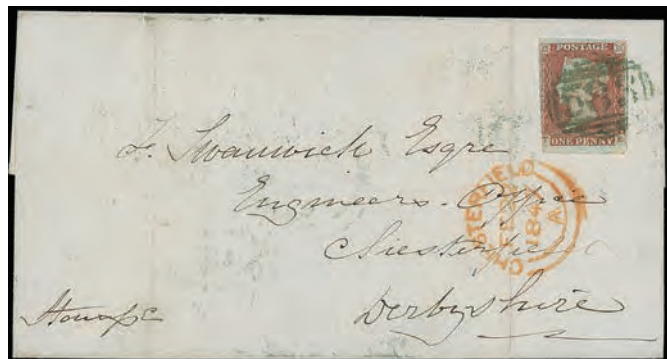 POSTAGE
ONE PENNY
F. Swanwick Esqre
Engineers Office
Chesterfield
Derbyshire